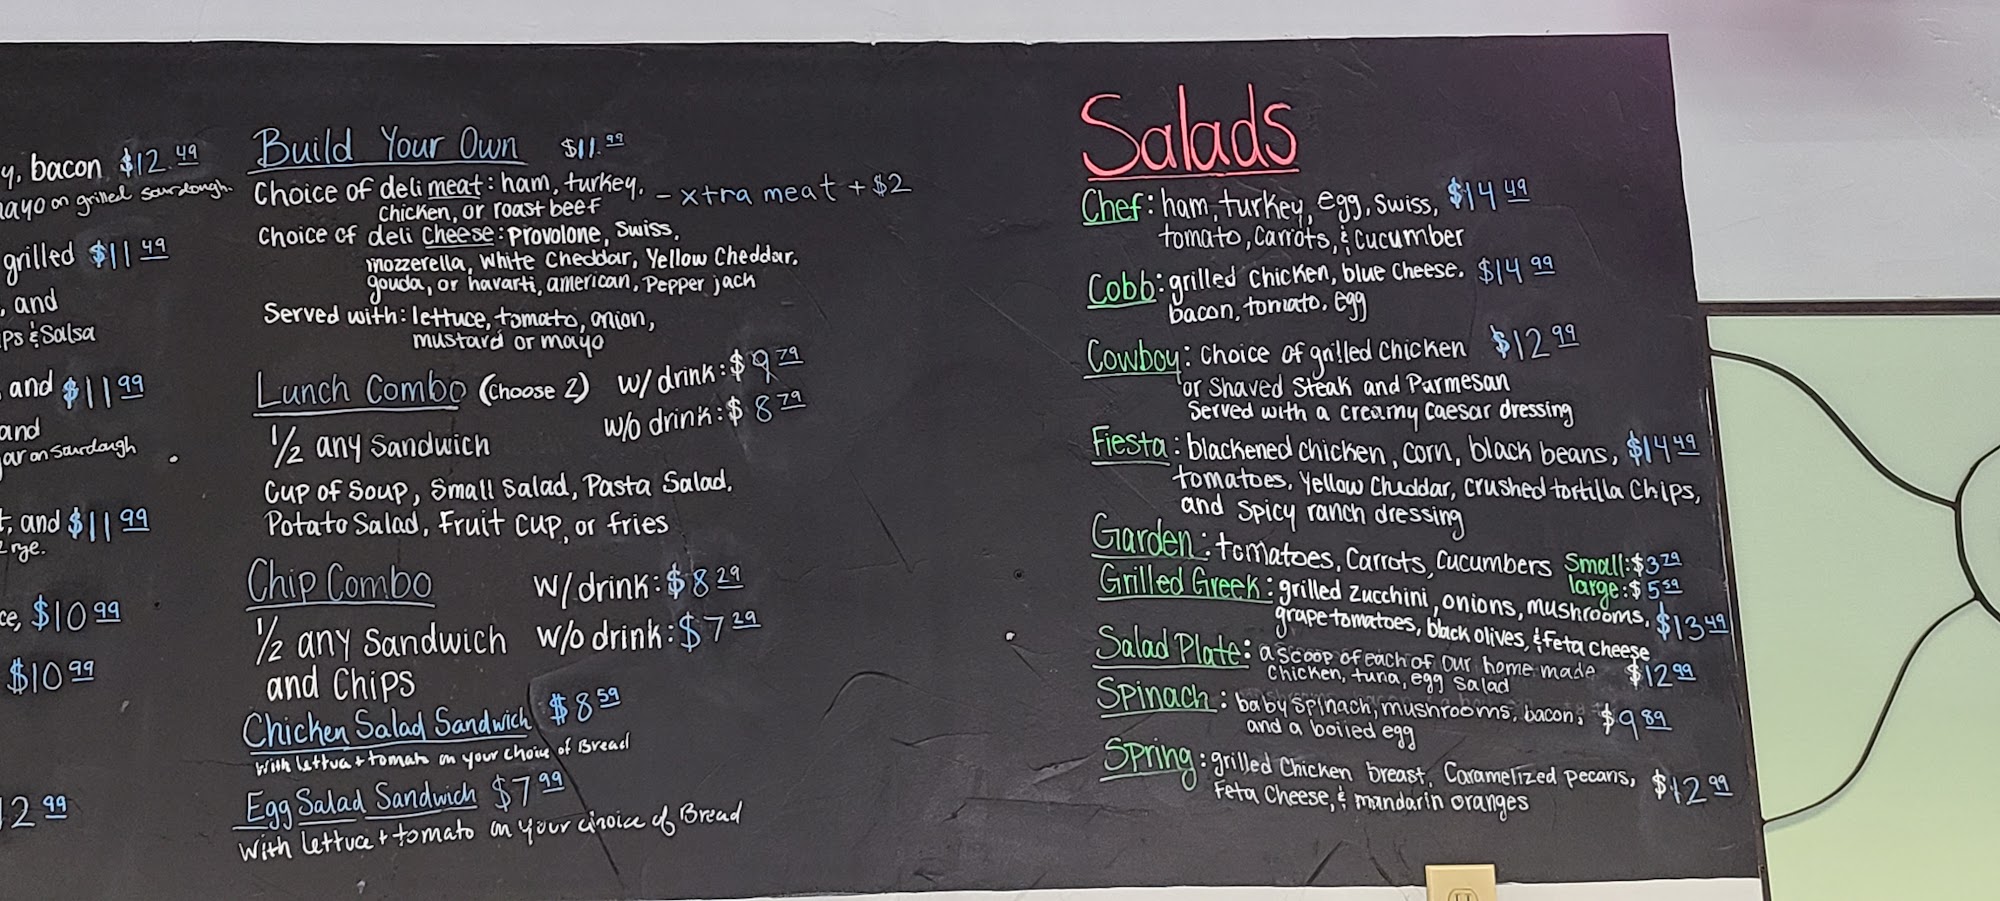 y, bacon $12.49
mayo on grilled sourdough.
grilled $11 49
, and
ps & Salsa
and $11 99
and
ar on Sourdough
, and $11 99
rye.
ce, $10 99
$10 99
2 99
Build Your Own $11.99
Choice of deli meat: ham, turkey, - xtra meat + $2
chicken, or roast beef
Choice of deli cheese: Provolone, Swiss,
mozzerella, White Cheddar, Yellow Cheddar,
gouda, or havarti, american, Pepper jack
Served with: lettuce, tomato, onion,
mustard or mayo
Lunch Combo (Choose 2) w/ drink: $9 79
w/o drink: $8 79
1/2 any Sandwich
Cup of Soup, Small Salad, Pasta Salad,
Potato Salad, Fruit Cup, or fries
Chip Combo w/ drink: $8 29
1/2 any Sandwich w/o drink: $7 29
and Chips
Chicken Salad Sandwich $8 59
With lettuce + tomato on your choice of Bread
Egg Salad Sandwich $7 99
With lettuce + tomato on your choice of Bread
Salads
Chef: ham, turkey, egg, Swiss, $14 49
tomato, Carrots, & Cucumber
Cobb: grilled Chicken, blue Cheese, $14 99
bacon, tomato, egg
Cowboy: Choice of grilled Chicken $12 99
or Shaved Steak and Parmesan
Served with a creamy caesar dressing
Fiesta: blackened chicken, corn, black beans, $14 49
tomatoes, Yellow Cheddar, crushed tortilla Chips,
and Spicy ranch dressing
Garden: tomatoes, Carrots, Cucumbers Small: $3 79
large: $5 59
Grilled Greek: grilled zucchini, onions, mushrooms, $13 49
grape tomatoes, black olives, & feta cheese
Salad Plate: a scoop of each of our home made $12 99
Chicken, tuna, egg salad
Spinach: baby spinach, mushrooms, bacon, $9 89
and a boiled egg
Spring: grilled Chicken breast, Caramelized pecans, $12 99
Feta Cheese, & mandarin oranges